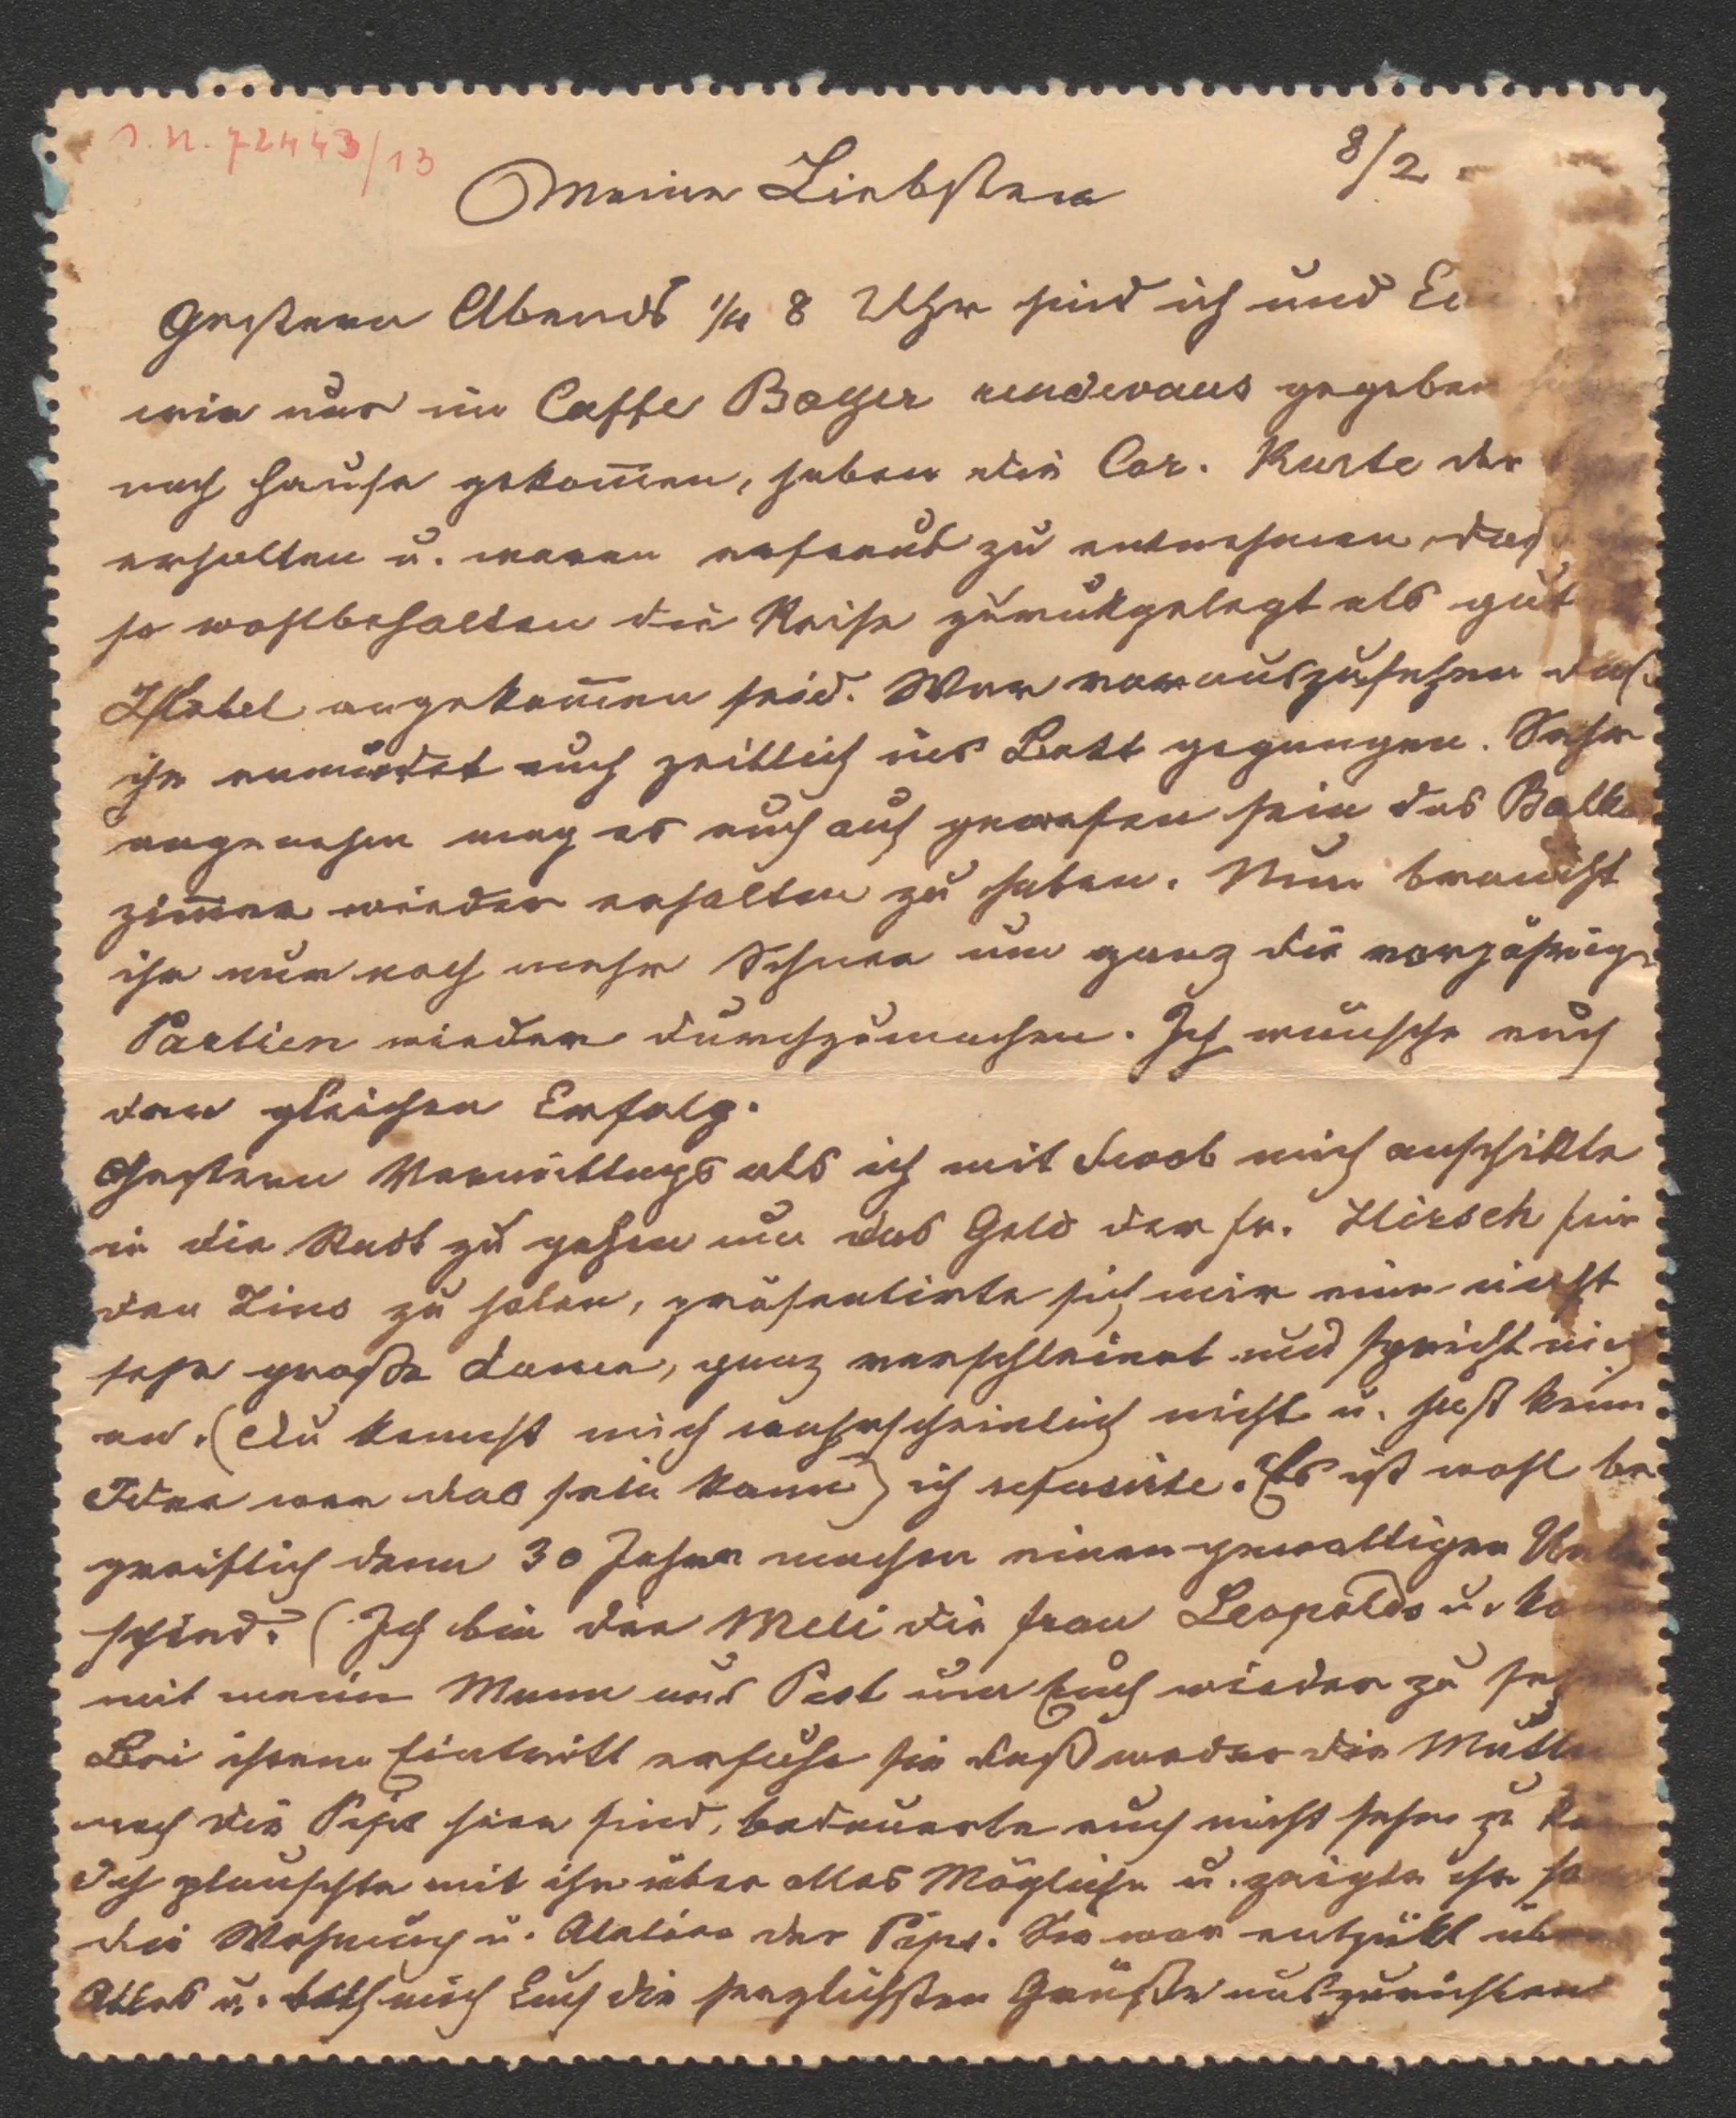 I.N. 72443/13
8/2
Meine Liebsten
Gestern Abends 1/4 8 Uhr sind ich und
wir uns im Caffe Bayer rendevous gegeben
nach Hause gekommen, haben die Cor. Karte der
erhalten u. waren erfreut zu entnehmen, daß
so wohlbehalten die Reise zurükgelegt als gut
angekommen seid. War vorauszusehen daß
ihr ermüdet auch zeitlich ins Bett gegangen. Sehr
angenehm mag es euch auch gewesen sein das Balko
zimmer wieder erhalten zu haben. Nun braucht
ihr nur noch mehr Schnee um ganz die vorjährige
Partien wieder durchzumachen. Ich wünsche euch
den gleichen Erfolg.
Gestern Vormittags als ich mit mich anschikte
in die Stadt zu gehen um das Geld der Fr. Hirsch für
den Zins zu holen, präsentirte sich mir eine nicht
sehr große Dame, ganz verschleiert und spricht mich
an. (Du kennst mich wahrscheinlich nicht u. hast keine
Idee wer das sein kann) ich refusirte. Es ist wohl be
greiflich denn 30 Jahre machen einen gewaltigen Unter
schied. (Ich bin die Meli die Frau Leopolds u.
mit mein Mann aus Pest um Euch wieder zu
Bei ihrem Eintritt erfuhr sie daß weder die Mutter
noch die Pepi hier sind, bedauerte euch nicht sehen zu
Ich plauschte mit ihr über alles Mögliche u. zeigte ihr
die Wohnung u. Atelier der Pepi. Sie war entzükt über
Alles u. bath mich Euch die herzlichsten Grüße auszurichten